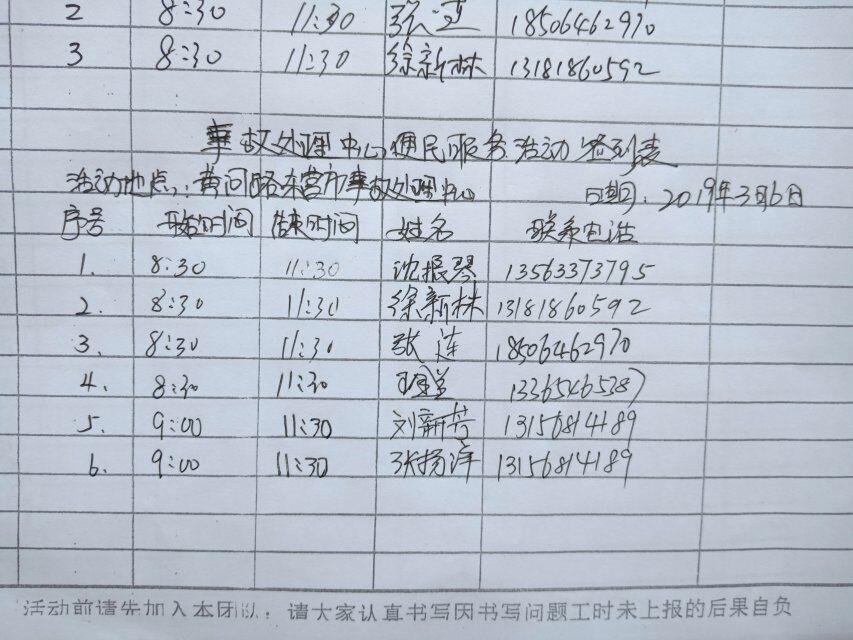 2 8:30 11:30 张连 18506462970
3 8:30 11:30 徐新林 13181860592
事故处理中心便民服务活动签到表
活动地点:黄河路东营市事故处理中心 日期:2019年3月6日
序号 开始时间 结束时间 姓名 联系电话
1. 8:30 11:30 沈振琴 13563373795
2. 8:30 11:30 徐新林 13181860592
3. 8:30 11:30 张连 18506462970
4. 8:30 11:30 13365465387
5. 9:00 11:30 刘新芳 13156814189
6. 9:00 11:30 张扬洋 13156814189
活动前请先加入本团队,请大家认真书写因书写问题工时未上报的后果自负